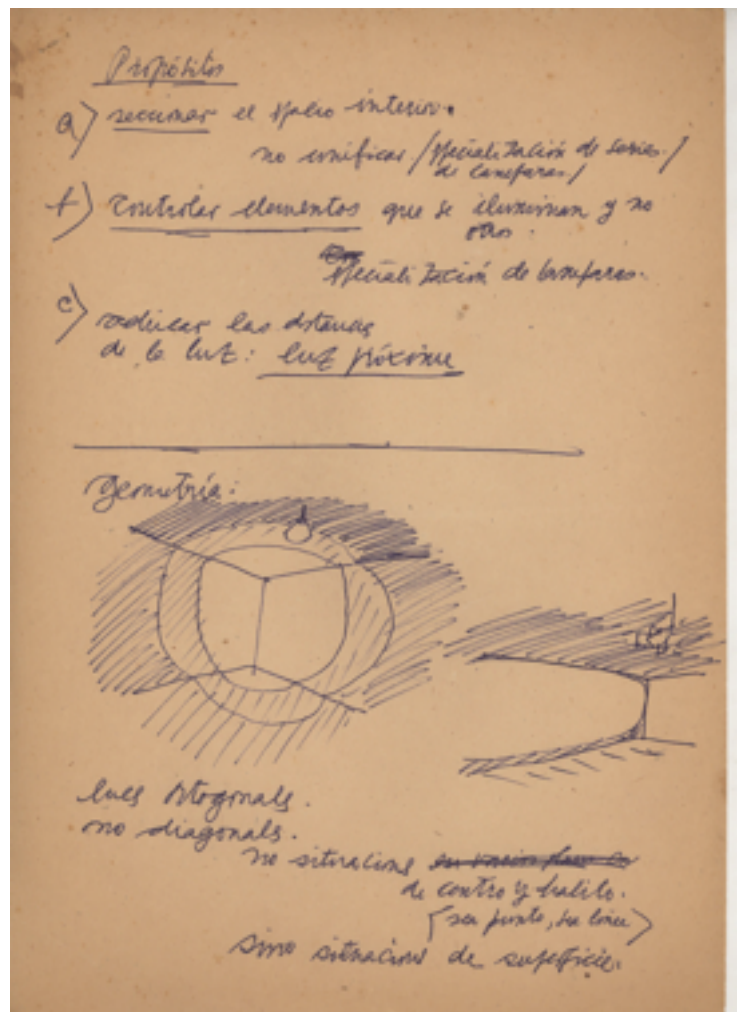 Propósitos
a) seccionar el spacio interior.
no unificar / specialización de series. /
de lamparas /
b) controlar elementos que se iluminan y no
otros.
specialización de lamparas.
c) reducir las distancias
de la luz: luz próxima
geometría:
luces ortogonals.
no diagonals.
no situacions
de centro y halito.
(sea punto, sea línea)
sino situacions de superficie.